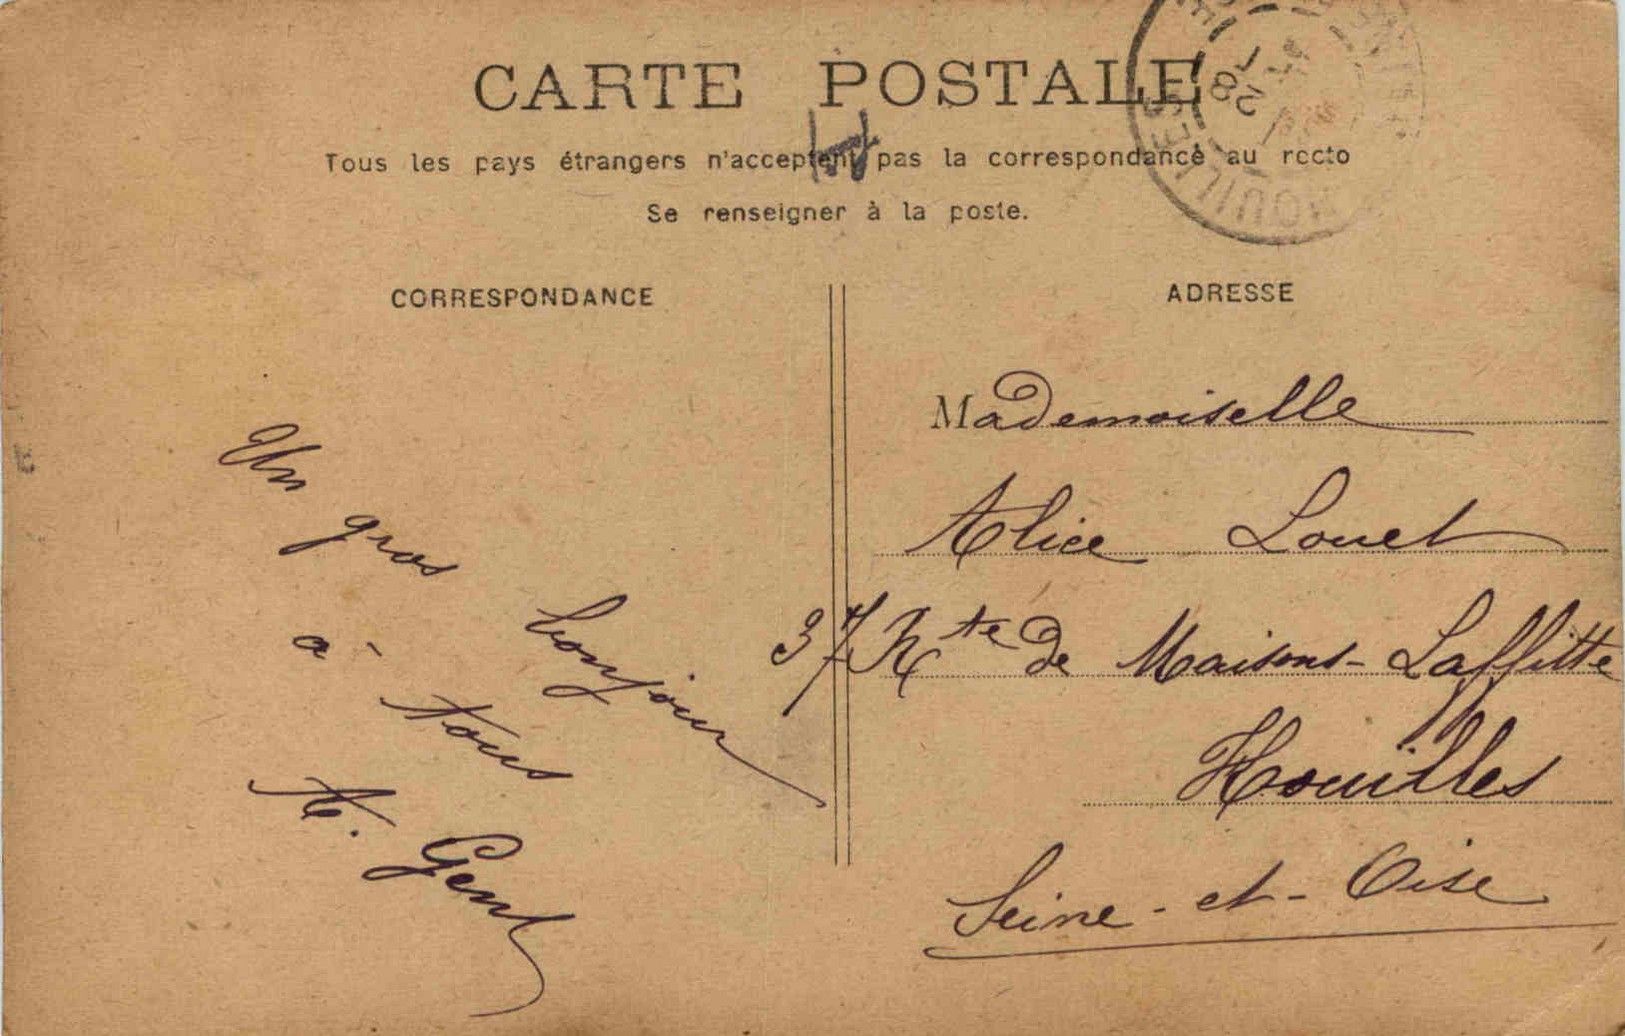 CARTE POSTALE
Tous les pays étrangers n'acceptent pas la correspondance au recto
Se renseigner à la poste.
CORRESPONDANCE
Un
gros
bonjour
à
tous
A. Gent
ADRESSE
Mademoiselle
Alice Louet
37 Rte de Maisons-Laffitte
Houilles
Seine-et-Oise
HOUILLES